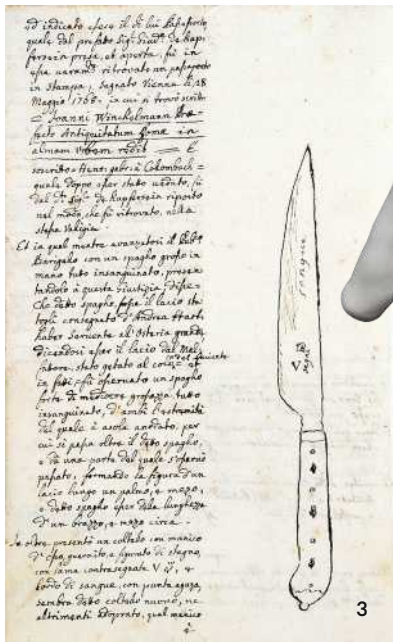 ed indicato esece il di lui Passaporto
quale dal prefato Sig.r Giud.e de Kup-
fersein preso, et aperto, fù in
esso ritrovato un passaporto
in Stampa, segnato Vienna li 28
Maggio 1768. in cui si trovò scritto
= Joanni Winckelmann Præ-
fecto Antiquitatum Romæ in
almam Urbem redit = E
soscritto =
quale doppo esser stato veduto, fù
dal d.o Sig.r de Kupfersein riposto
nel modo, che fù ritrovato, nella
stessa Valigia.
Et in quel mentre avanzatosi il
Barigello con un spagho grosso in
mano tutto insanguinato, presen-
tandolo à questa Giustizia disse =
Che detto spagho, fosse il lacio sta-
togli consegnato d'Andrea Harti
haber servente all'Osteria grande
dicendosi esser il lacio dal Mal-
fatore, stato gettato al collo et
in fatti fù osservato un spagho
forte di mediocre grossezza tutto
insanguinato, d'ambi l'estremità
del quale à asola anodato, per
cui si passa oltre il detto spagho,
e da una parte del quale s'osservò
passato, formando la figura d'un
lacio longo un palmo, e mezo,
e detto spagho esser della lunghezza
d'un brazzo, e mezo circa.
In oltre presentò un coltello con manico
d'osso, guarnito, e figurato di stagno,
con lama contrasegnata V
lordo di sangue, con punta aguza,
sembra detto coltello nuovo, ne
altrimenti adoprato, qual manico
è
sangue
V
segno
3